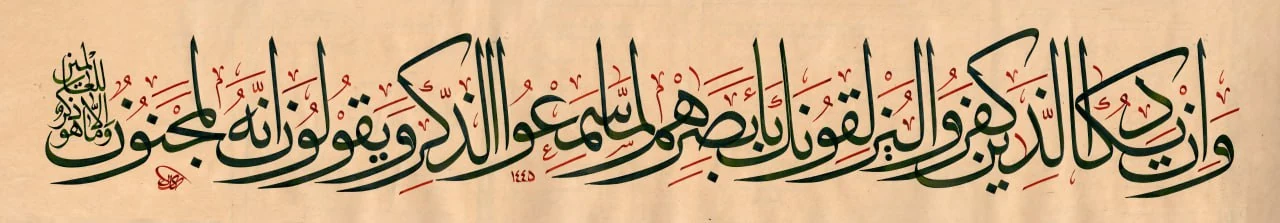 وَإِنْ يَكَادُ الَّذِينَ كَفَرُوا لَيُزْلِقُونَكَ بِأَبْصَارِهِمْ لَمَّا سَمِعُوا الذِّكْرَ وَيَقُولُونَ إِنَّهُ لَمَجْنُونٌ
وَمَا هُوَ إِلَّا ذِكْرٌ لِلْعَالَمِينَ
١٤٤٥